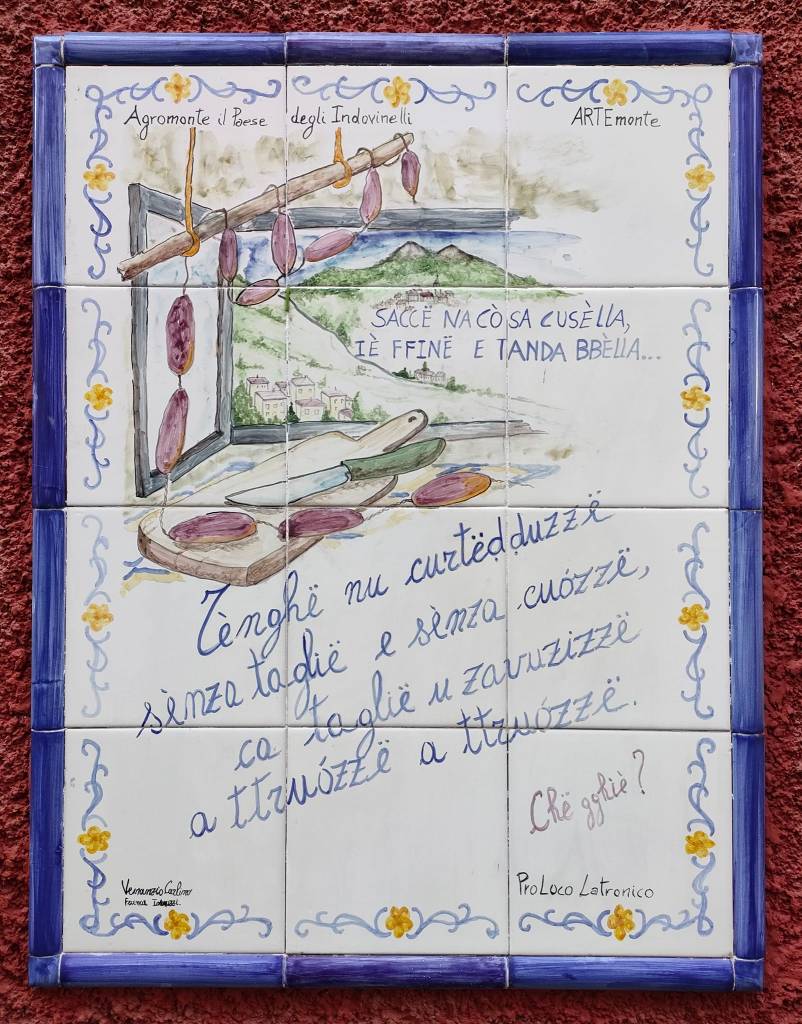 Agromonte il Paese degli Indovinelli
ARTEmonte
SACCË NA CÒSA CUSÈLLA,
IÈ FFINË E TANDA BBÈLLA...
Tènghë nu curtëḍḍuzzë
sènza taglië e sènza cuózzë,
ca taglië u zavuzizzë
a ttruózzë a ttruózzë.
Chë gghiè?
ProLoco Latronico